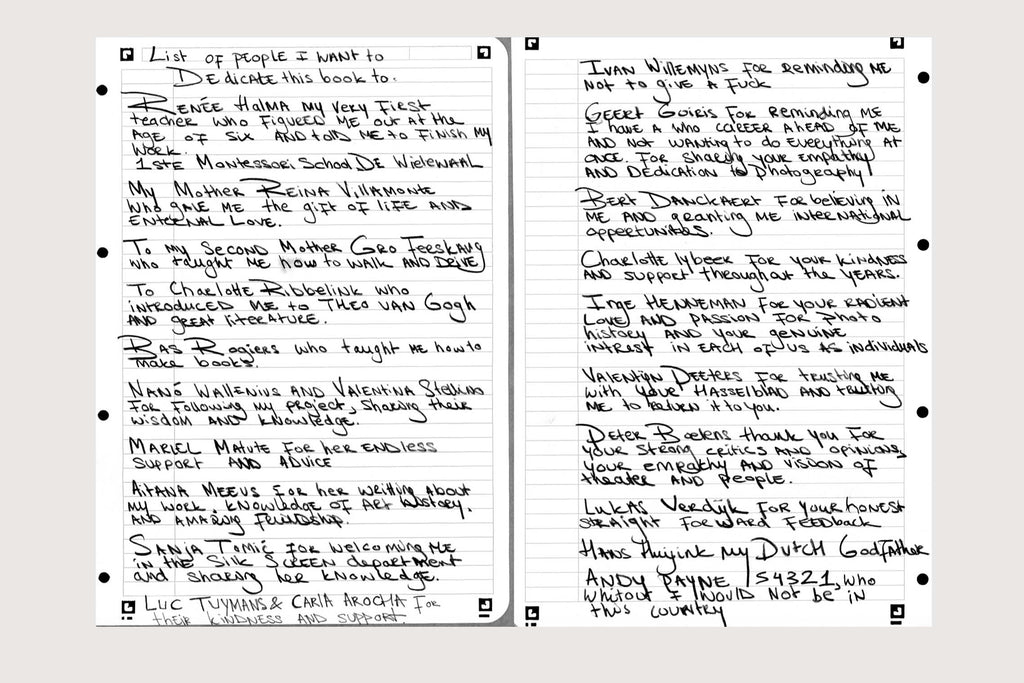 List of people I want to
Dedicate this book to:
Renée Halma my very first
teacher who figured me out at the
age of six and told me to finish my
work.
1ste Montessori School De Wielewaal
My Mother Reina Villamonte
who gave me the gift of life and
enternal love.
To my second Mother Gro Feeskarg
who taught me how to walk and drive
To Charlotte Ribbelink who
introduced me to Theo van Gogh
and great literature.
Bas Rogiers who taught me how to
make books.
Nanó Wallenius and Valentina Stellino
for following my project, sharing their
wisdom and knowledge.
Mariel Matute for her endless
support and advice
Aitana Meeus for her writting about
my work, knowledge of art history,
and amazing friendship.
Sanja Tomic for welcoming me
in the silk screen department
and sharing her knowledge.
Luc Tuymans & Carla Arocha for
their kindness and support.
Ivan Willemyns for reminding me
not to give a fuck
Geert Goiris for reminding me
I have a who career ahead of me
and not wanting to do everything at
once. For sharing your empathy
and dedication to photography
Bert Danckaert for believing in
me and granting me international
oppertunities.
Charlotte lybeer for your kindness
and support throughout the years.
Inge Henneman for your radient
love and passion for photo
history and your genuine
intrest in each of us as individuals
Valentijn Deeters for trusting me
with your Hasselblad and trusting
me to return it to you.
Peter Boelens thank you for
your strong critics and opinions,
your empathy and vision of
theater and people.
Lukas Verdijk for your honest
straight forward feedback
Hans my Dutch Godfather
Andy Payne 154321, who
whitout I would not be in
this country